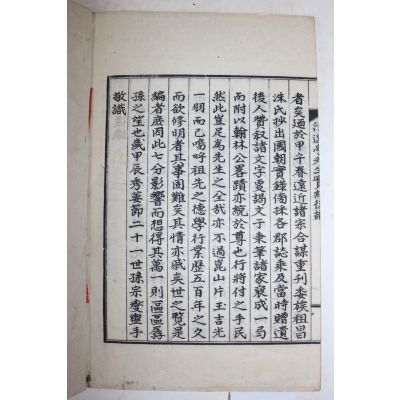 者矣迺於甲午春遠近諸宗合謀重刊委族祖昌
洙氏抄出國朝實錄傍採各郡誌乘及當時贈遺
後人贊叙諸文字更謁文于秉筆諸家裒成一局
而附以翰林公畧蹟亦統於尊也行將付之手民
然此豈足爲先生之全哉亦不過崑山片玉吉光
一羽而已嗚呼祖先之德學行業歷五百年之久
而欲修明者其事固難矣其情亦戚矣世之覽是
編者庶因此七分影響而想得其萬一則區區孱
孫之望也歲甲辰秀葽節二十一世孫宗燮盥手
敬識
先生實紀